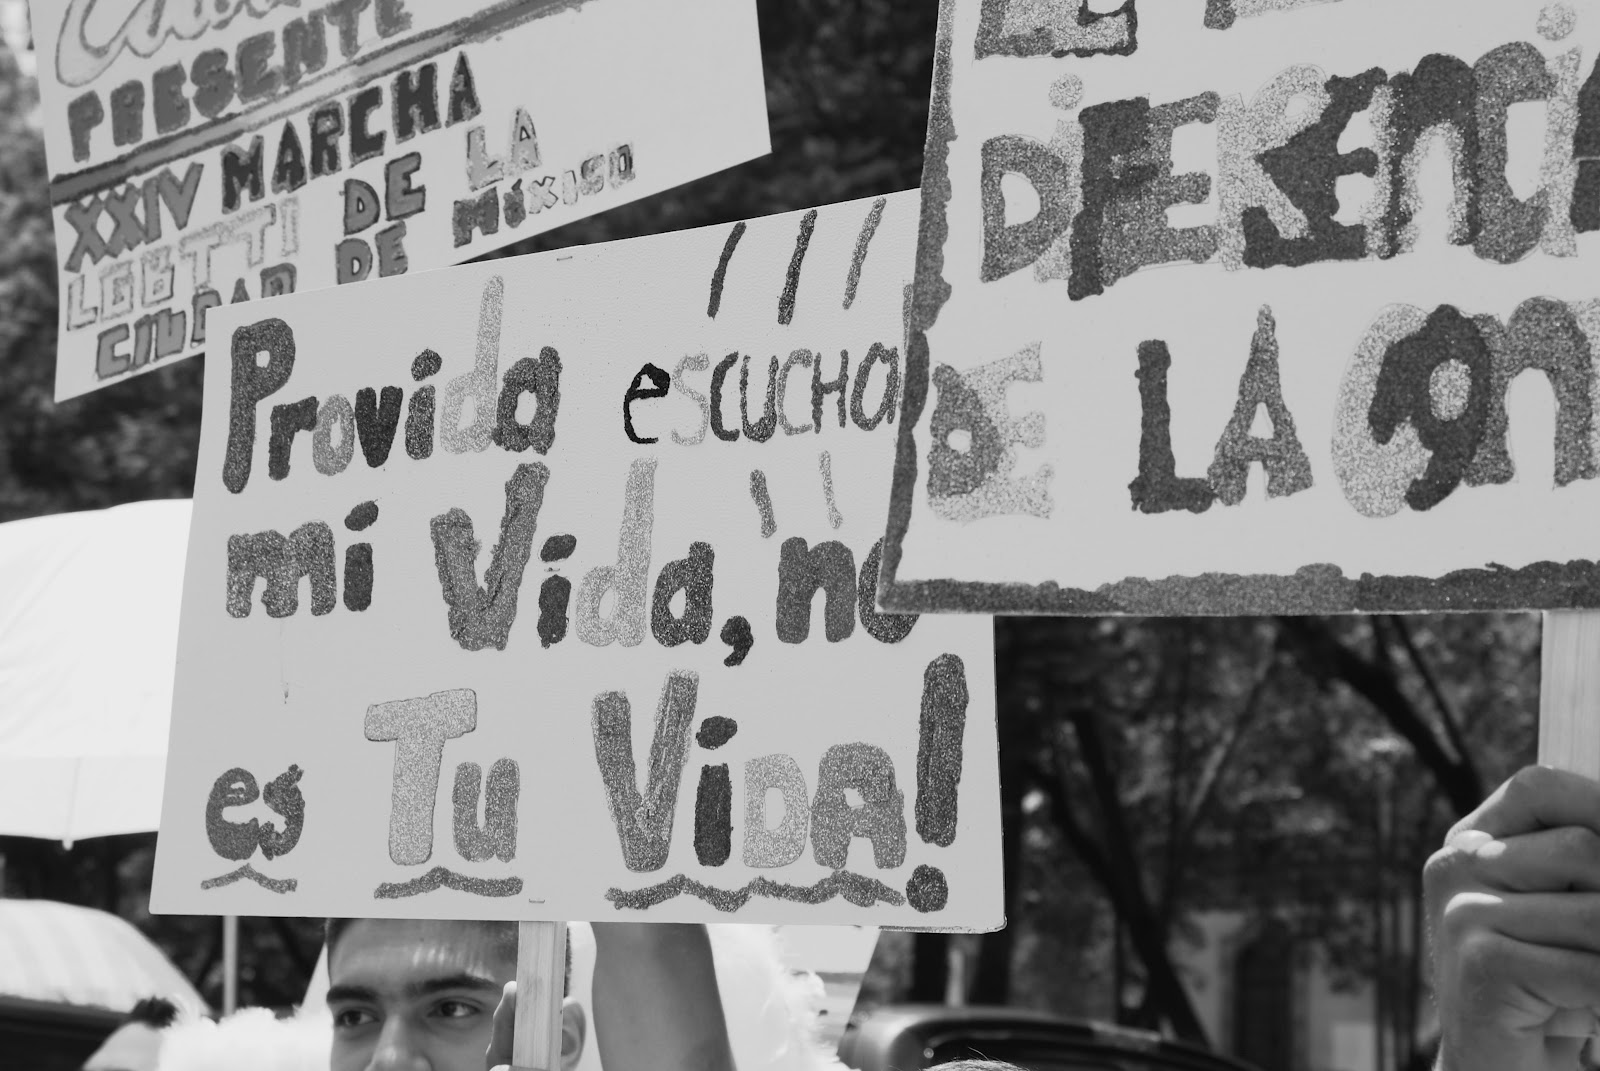 PRESENTE
XXIV MARCHA
LGBTTTI DE LA
CIUDAD DE MÉXICO
Provida escucha
mi Vida, no
es Tu ViDA!
DiFERENCi
DE LA